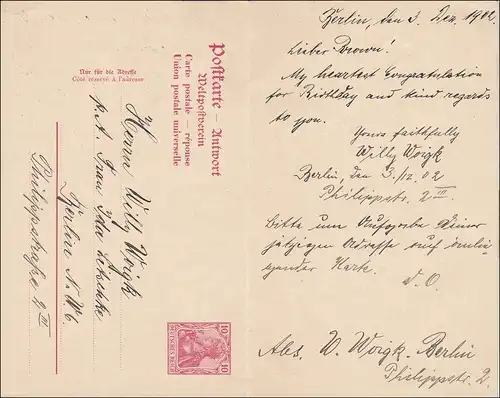 Postkarte – Antwort
Weltpostverein
Carte postale – réponse
Union postale universelle
Nur für die Adresse
Côté réservé à l'adresse
Herrn Willy Woigk
p. A. Frau Ida
Berlin N.W6.
Philippstraße 2 III
DEUTSCHES REICH
10 10
Berlin, den 3. Dez. 1902.
Lieber Brown!
My heartest Congratulation
for Birthday and kind regards
to you.
Yours faithfully
Willy Woigk
Berlin, den 3./12. 02
Philippstr. 2 III.
Bitte um Aufgabe Deiner
jetzigen Adresse auf anlie-
gender Karte.
D. O.
Abs. W. Woigk. Berlin
Philippstr. 2.